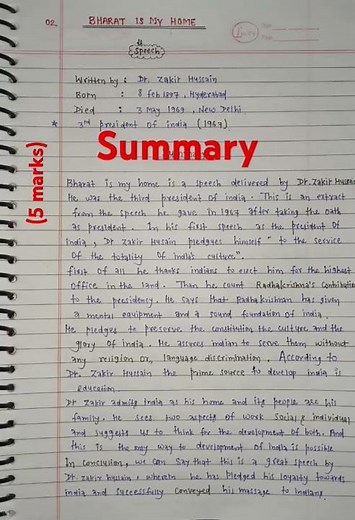 02. BHARAT IS MY HOME
Speech
Written by : Dr. Zakir Hussain
Born : 8 feb 1897, Hyderabad
Died : 3 May 1969, New Delhi
* 3rd president of india (1967)
Summary
(5 marks)
Bharat is my home is a speech delivered by Dr. Zakir Hussain
He was the third president of india. This is an extract
from the speech he gave in 1967 after taking the oath
as president. In his first speech as the president of
india, Dr Zakir Husain pledges himself "to the service
of the totality of India's culture".
first of all he thanks indians to elect him for the highest
office in the land. Than he count Radhakrishna's contribution
to the presidency. He says that Radhakrishnan has given
a mental equipment and a sound foundation of india.
He pledges to preserve the constitution the culture and the
glory of india. He assures indian to serve them without
any religion or, language discrimination. According to
Dr. Zakir Hussain the prime source to develop india is
education.
Dr Zakir admits india as his home and its people are his
family. He sees two aspects of work social & individual
and suggests us to think for the development of both. And
this is the only way to development of India is possible
In conclusion, we can say that this is a great speech by
Dr. zakir hussain, wherein he has pledged his loyalty towards
india and successfully conveyed his massage to indians.